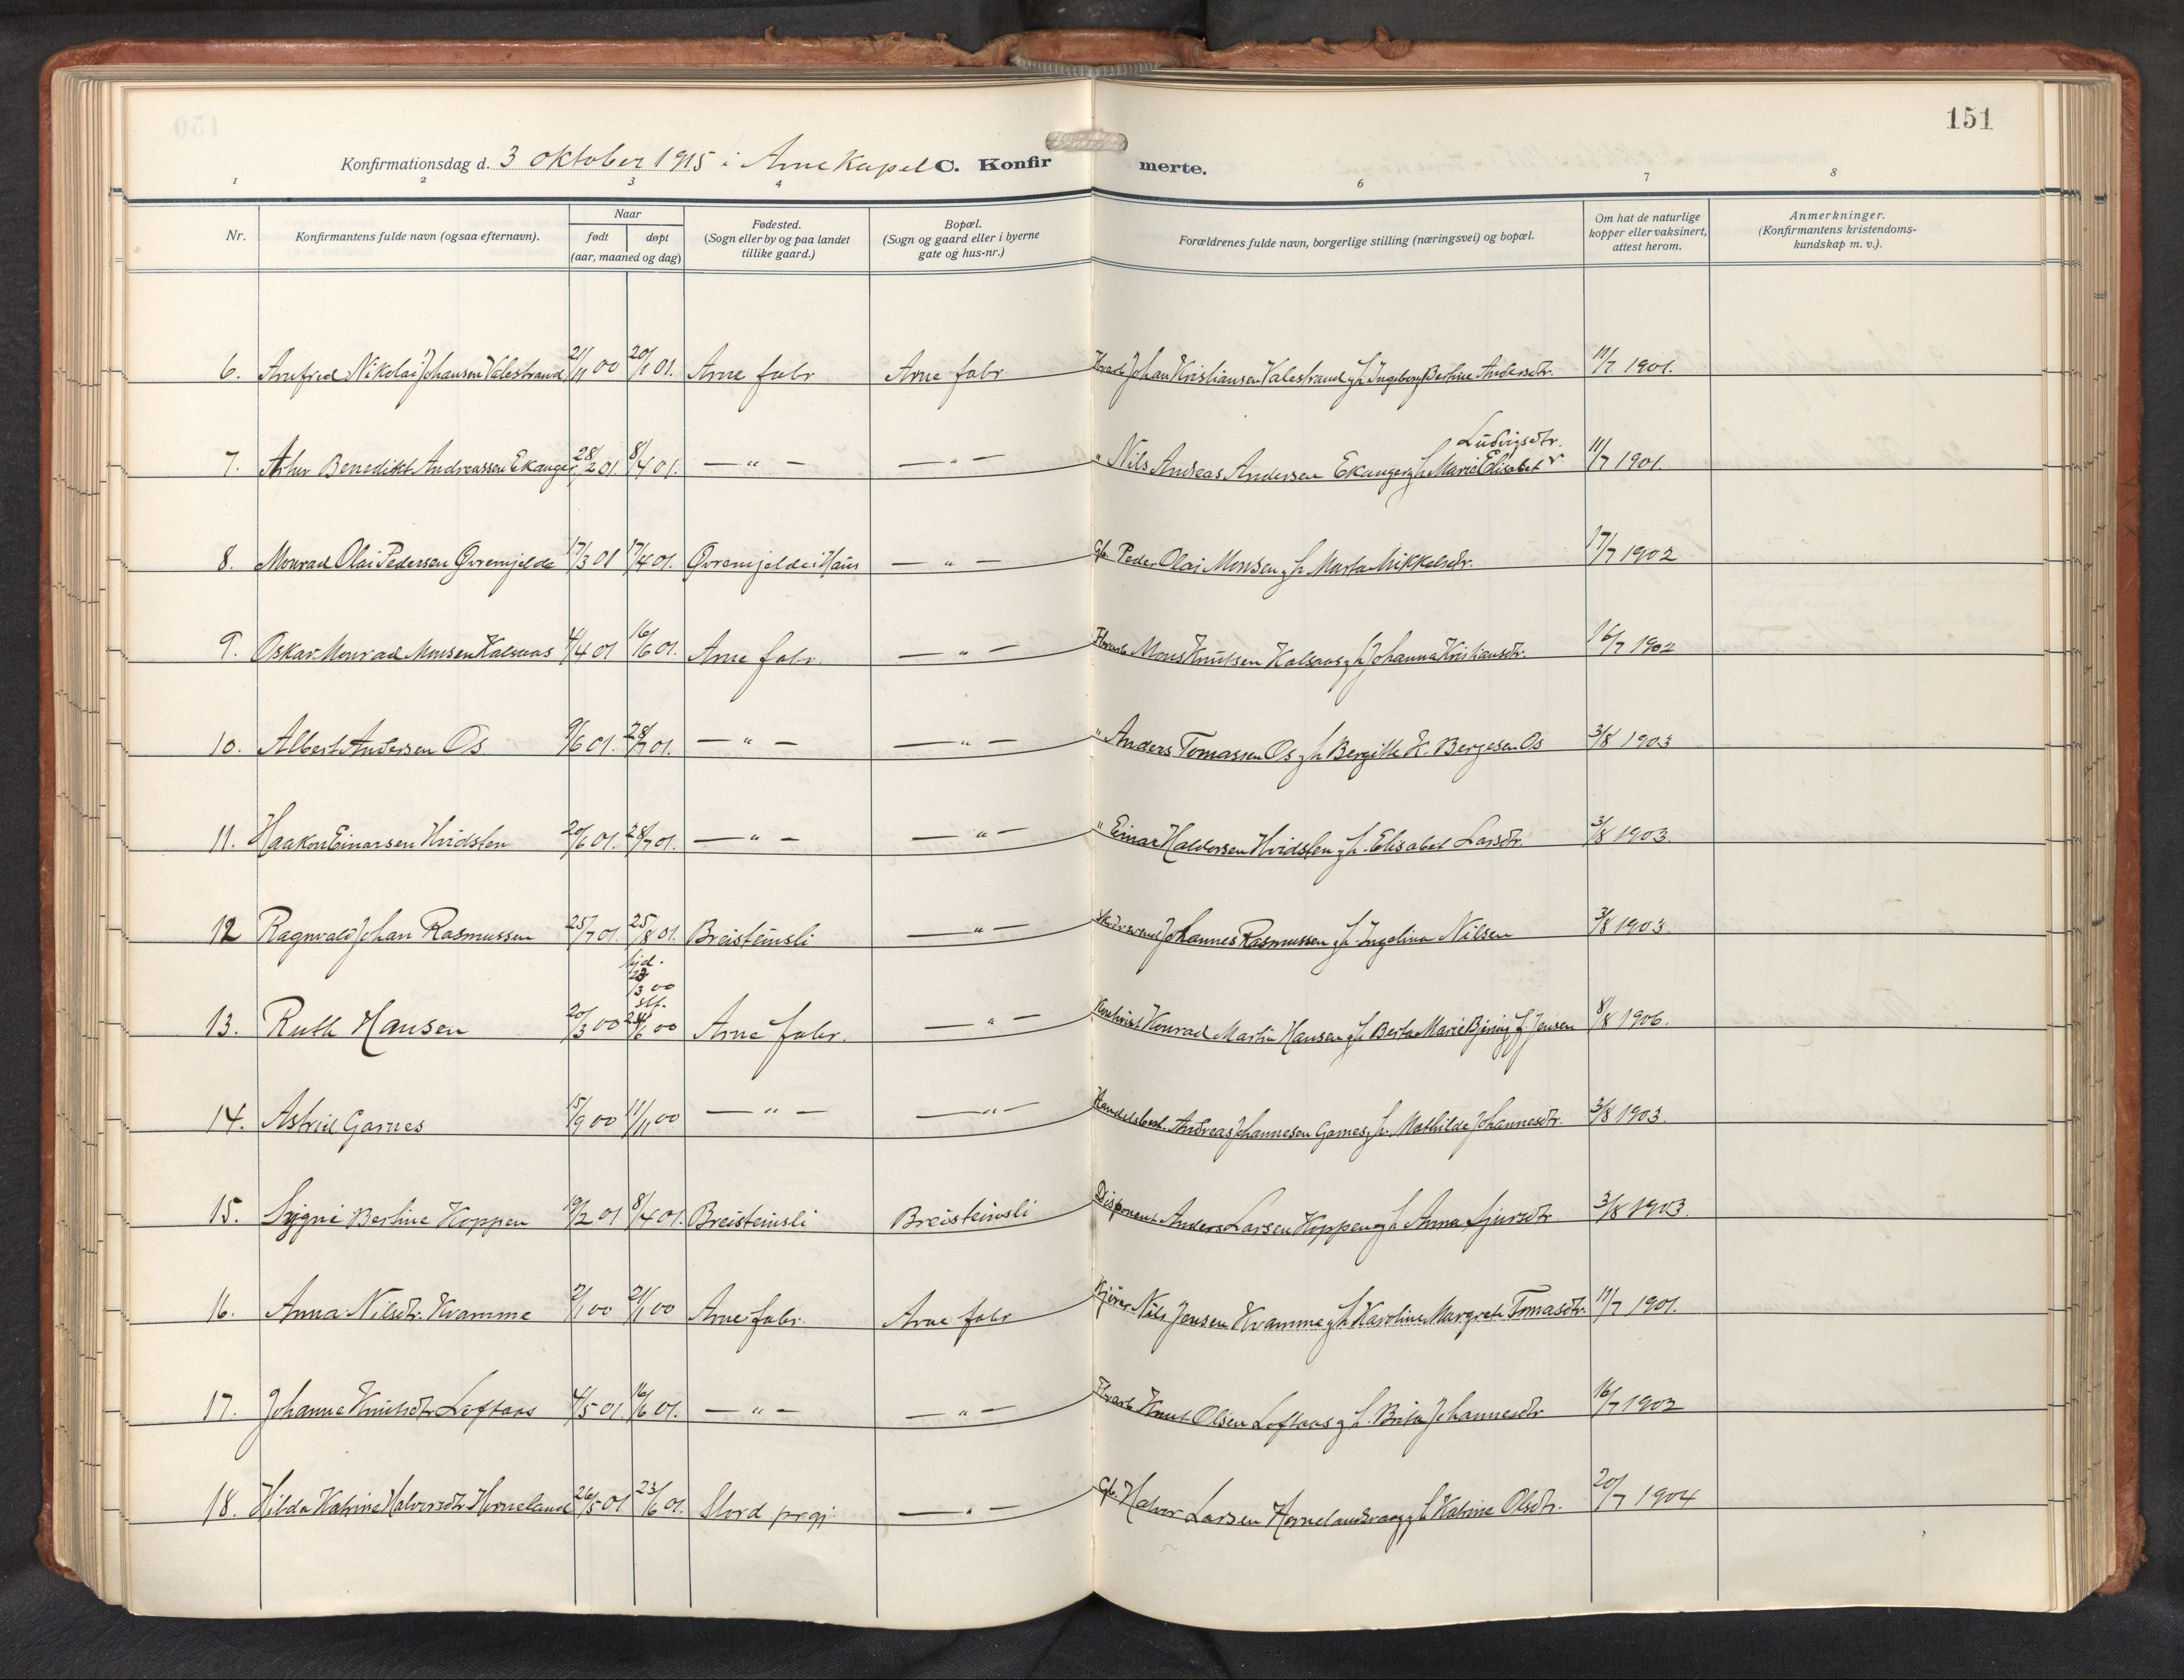 151
Konfirmationsdag d. 3 oktober 1915 i Arne Kapel C. Konfirmerte.
1 2 3 4 6 7 8
Nr.
Konfirmantens fulde navn (ogsaa efternavn).
Naar
født døpt
(aar, maaned og dag)
Fødested.
(Sogn eller by og paa landet
tillike gaard.)
Bopæl.
(Sogn og gaard eller i byerne
gate og hus-nr.)
Forældrenes fulde navn, borgerlige stilling (næringsvei) og bopæl.
Om hat de naturlige
kopper eller vaksinert,
attest herom.
Anmerkninger.
(Konfirmantens kristendoms-
kundskap m. v.).
6. Arnfred Nikolai Johansen Valestrand 21/11 00 20/1 01. Arne fabr Arne fabr Johan Kristiansen Valestrand gh Ingeborg Bertine Andersdtr. 11/7 1901.
Ludvigsdtr.
7. Artur Benedikt Andreassen Ekanger 28/2 01 8/4 01. — " — — " — " Nils Andreas Andersen Ekanger gh Marie Elisabet 11/7 1901.
8. Monrad Olai Pedersen Øvremjelde 17/3 01 17/4 01. Øvremjelde i Haus — " — Gb. Peder Olai Monsen gh Marta Mikkelsdtr. 17/7 1902
9. Oskar Monrad Monsen Kalsaas 4/4 01 16/6 01. Arne fabr. — " — Mons Knutsen Kalsaas gh Johanna Kristiansdtr. 16/7 1902
10. Albert Andersen Os 9/6 01. 28/7 01. — " — — " — " Anders Tomassen Os gh Bergitte K. Bergesen Os 3/8 1903
11. Haakon Einarsen Hvidsten 20/6 01. 28/7 01. — " — — " — " Einar Haldorsen Hvidsten gh. Elisabet Larsdtr. 3/8 1903.
12 Ragnvald Johan Rasmussen 25/7 01. 25/8 01. Breisteinsli — " — Johannes Rasmussen gh. Ingelina Nilsen 3/8 1903.
hjd.
23/3 00
stf.
13. Ruth Hansen 20/3 00 24/6 00 Arne fabr. — " — Konrad Martin Hansen gh Berta Marie f. Jensen 8/8 1906.
14. Astrid Garnes 15/9 00 11/11 00 — " — — " — Handelsbest. Andreas Johannesen Garnes gh. Mathilde Johannesdtr. 3/8 1903.
15. Signe Bertine Hoppen 19/2 01 8/4 01. Breisteinsli Breisteinsli Disponent Anders Larsen Hoppen gh Anna Sjursdtr. 3/8 1903.
16. Anna Nilsdtr. Kvamme 2/1 00 21/1 00 Arne fabr. Arne fabr Nils Jensen Kvamme gh Karoline Margrete Tomasdtr. 11/7 1901.
17. Johanne Knutsdtr Loftaas 4/5 01. 16/6 01. — " — — " — Knut Olsen Loftaas gh. Brita Johannesdtr 16/7 1902
18. Hilda Katrine Halvorsdtr. Horneland 26/5 01 23/6 01. Stord prgj. — " — Gb. Halvor Larsen gh Katrine Olsdtr. 20/7 1904